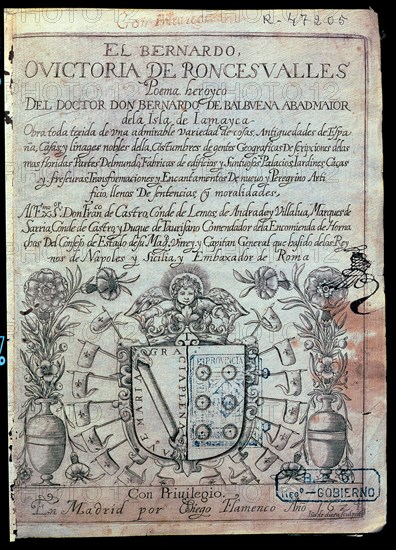 Con Privilegio
R-47205
EL BERNARDO,
O VICTORIA DE RONCESVALLES
Poema heroyco
DEL DOCTOR DON BERNARDO DE BALBVENA ABAD MAIOR
de la Isla de Iamayca
Obra toda texida de vna admirable variedad de cosas, Antiguedades de Espa-
ña, Casas, y linages nobles della, Costumbres de gentes Geograficas Descripciones de las
mas floridas Partes Del mundo, Fabricas de edificios y Suntuosos Palacios, Iardines, Caças
y frescuras, Transformaciones y Encantamentos De nuevo y Peregrino Arti-
ficio, llenos De sentencias, y moralidades.
Al Exᵐᵒ Sᵒʳ Don Franᶜᵒ de Castro, Conde de Lemos, de Andrade y Villalua, Marques de
Sarria, Conde de Castro y Duque de Taurisano Comendador de la Encomienda de Horna-
chos Del Consejo de Estado de su Magᵈ Virrey, y Capitan General que ha sido de los Rey-
nos de Napoles y Sicilia, y Embaxador de Roma
AVE MARIA GRATIA PLENA
BᴬPROVINCIA
B. P.
REGº-GOBIERNO
Con Priuilegio.
En Madrid por Diego Flamenco Año